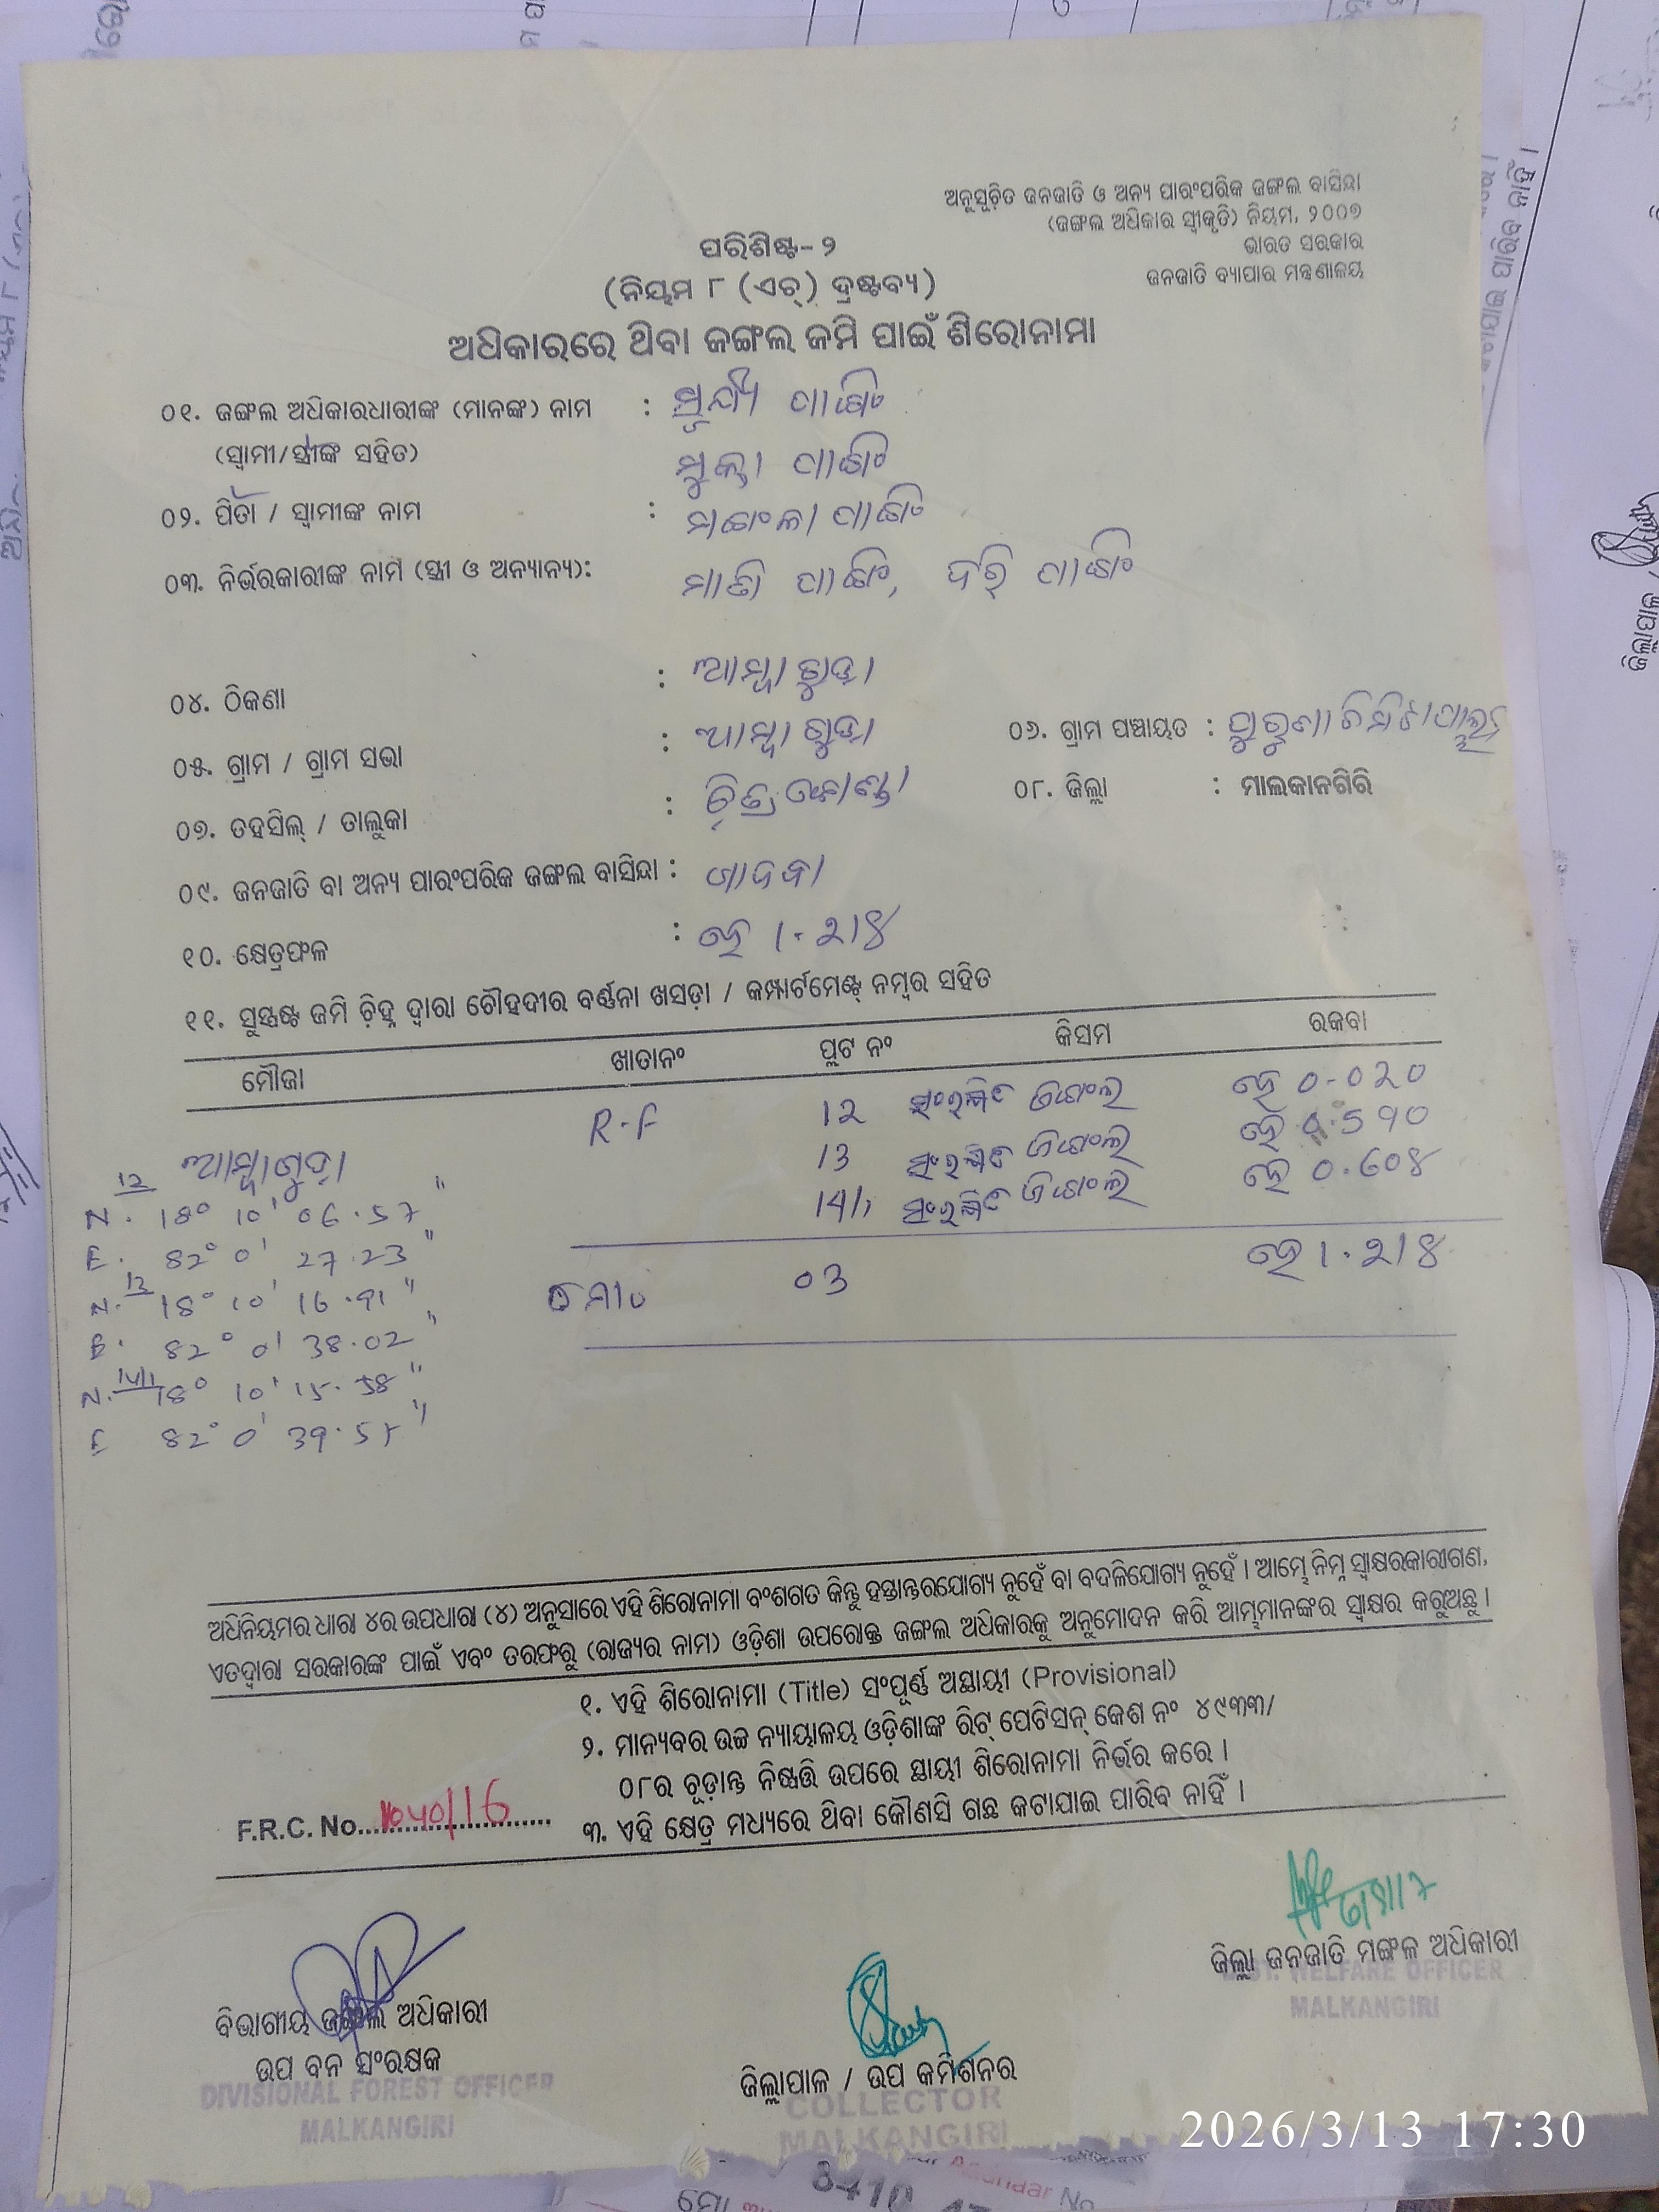 ଅନୁସୂଚିତ ଜନଜାତି ଓ ଅନ୍ୟ ପାରଂପରିକ ଜଙ୍ଗଲ ବାସିନ୍ଦା
(ଜଙ୍ଗଲ ଅଧିକାର ସ୍ୱୀକୃତି) ନିୟମ, ୨୦୦୭
ଭାରତ ସରକାର
ଜନଜାତି ବ୍ୟାପାର ମନ୍ତ୍ରଣାଳୟ
ପରିଶିଷ୍ଟ-୨
(ନିୟମ ୮ (ଏଚ୍) ଦ୍ରଷ୍ଟବ୍ୟ)
ଅଧିକାରରେ ଥିବା ଜଙ୍ଗଲ ଜମି ପାଇଁ ଶିରୋନାମା
୦୧. ଜଙ୍ଗଲ ଅଧିକାରଧାରୀଙ୍କ (ମାନଙ୍କ) ନାମ :
(ସ୍ୱାମୀ/ସ୍ତ୍ରୀଙ୍କ ସହିତ) ମୁକ୍ତା
୦୨. ପିତା / ସ୍ୱାମୀଙ୍କ ନାମ :
୦୩. ନିର୍ଭରକାରୀଙ୍କ ନାମ (ସ୍ତ୍ରୀ ଓ ଅନ୍ୟାନ୍ୟ):
୦୪. ଠିକଣା : ଆମ୍ବାଗୁଡା
୦୫. ଗ୍ରାମ / ଗ୍ରାମ ସଭା : ଆମ୍ବାଗୁଡା ୦୬. ଗ୍ରାମ ପଞ୍ଚାୟତ :
୦୭. ତହସିଲ୍ / ତାଲୁକା : ୦୮. ଜିଲ୍ଲା : ମାଲକାନଗିରି
୦୯. ଜନଜାତି ବା ଅନ୍ୟ ପାରଂପରିକ ଜଙ୍ଗଲ ବାସିନ୍ଦା : ଗାଦବା
୧୦. କ୍ଷେତ୍ରଫଳ : ହେ 1.214
୧୧. ସୁସ୍ପଷ୍ଟ ଜମି ଚ଼ିହ୍ନ ଦ୍ୱାରା ଚୌହଦୀର ବର୍ଣ୍ଣନା ଖସଡ଼ା / କମ୍ପାର୍ଟମେଣ୍ଟ୍ ନମ୍ବର ସହିତ
ମୌଜା ଖାତାନଂ ପ୍ଲଟ ନଂ କିସମ ରକବା
R.F 12 ସଂରକ୍ଷିତ ଜଙ୍ଗଲ ହେ 0.020
ଆମ୍ବାଗୁଡା 13 ସଂରକ୍ଷିତ ଜଙ୍ଗଲ ହେ 0.590
14/1 ସଂରକ୍ଷିତ ଜଙ୍ଗଲ ହେ 0.604
12
N. 18° 10' 06.57"
E. 82° 0' 27.23"
03 ହେ 1.214
13
N. 18° 10' 16.91"
E. 82° 0' 38.02"
14/1
N. 18° 10' 15.58"
E 82° 0' 39.55"
ଅଧିନିୟମର ଧାରା ୪ର ଉପଧାରା (୪) ଅନୁସାରେ ଏହି ଶିରୋନାମା ବଂଶଗତ କିନ୍ତୁ ହସ୍ତାନ୍ତରଯୋଗ୍ୟ ନୁହେଁ ବା ବଦଳିଯୋଗ୍ୟ ନୁହେଁ । ଆମ୍ଭେ ନିମ୍ନ ସ୍ୱାକ୍ଷରକାରୀଗଣ,
ଏତଦ୍ୱାରା ସରକାରଙ୍କ ପାଇଁ ଏବଂ ତରଫରୁ (ରାଜ୍ୟର ନାମ) ଓଡ଼ିଶା ଉପରୋକ୍ତ ଜଙ୍ଗଲ ଅଧିକାରକୁ ଅନୁମୋଦନ କରି ଆମ୍ଭମାନଙ୍କର ସ୍ୱାକ୍ଷର କରୁଅଛୁ ।
୧. ଏହି ଶିରୋନାମା (Title) ସଂପୂର୍ଣ୍ଣ ଅସ୍ଥାୟୀ (Provisional)
୨. ମାନ୍ୟବର ଉଚ୍ଚ ନ୍ୟାୟାଳୟ ଓଡ଼ିଶାଙ୍କ ରିଟ୍ ପେଟିସନ୍ କେଶ ନଂ ୪୯୩୩/
୦୮ର ଚୂଡ଼ାନ୍ତ ନିଷ୍ପତ୍ତି ଉପରେ ସ୍ଥାୟୀ ଶିରୋନାମା ନିର୍ଭର କରେ ।
୩. ଏହି କ୍ଷେତ୍ର ମଧ୍ୟରେ ଥିବା କୌଣସି ଗଛ କଟାଯାଇ ପାରିବ ନାହିଁ ।
F.R.C. No.
ଜିଲ୍ଲା ଜନଜାତି ମଙ୍ଗଳ ଅଧିକାରୀ
DIST. WELFARE OFFICER
MALKANGIRI
ବିଭାଗୀୟ ଜଙ୍ଗଲ ଅଧିକାରୀ
ଉପ ବନ ସଂରକ୍ଷକ
DIVISIONAL FOREST OFFICER
MALKANGIRI
ଜିଲ୍ଲାପାଳ / ଉପ କମିଶନର
COLLECTOR
MALKANGIRI
2026/3/13 17:30